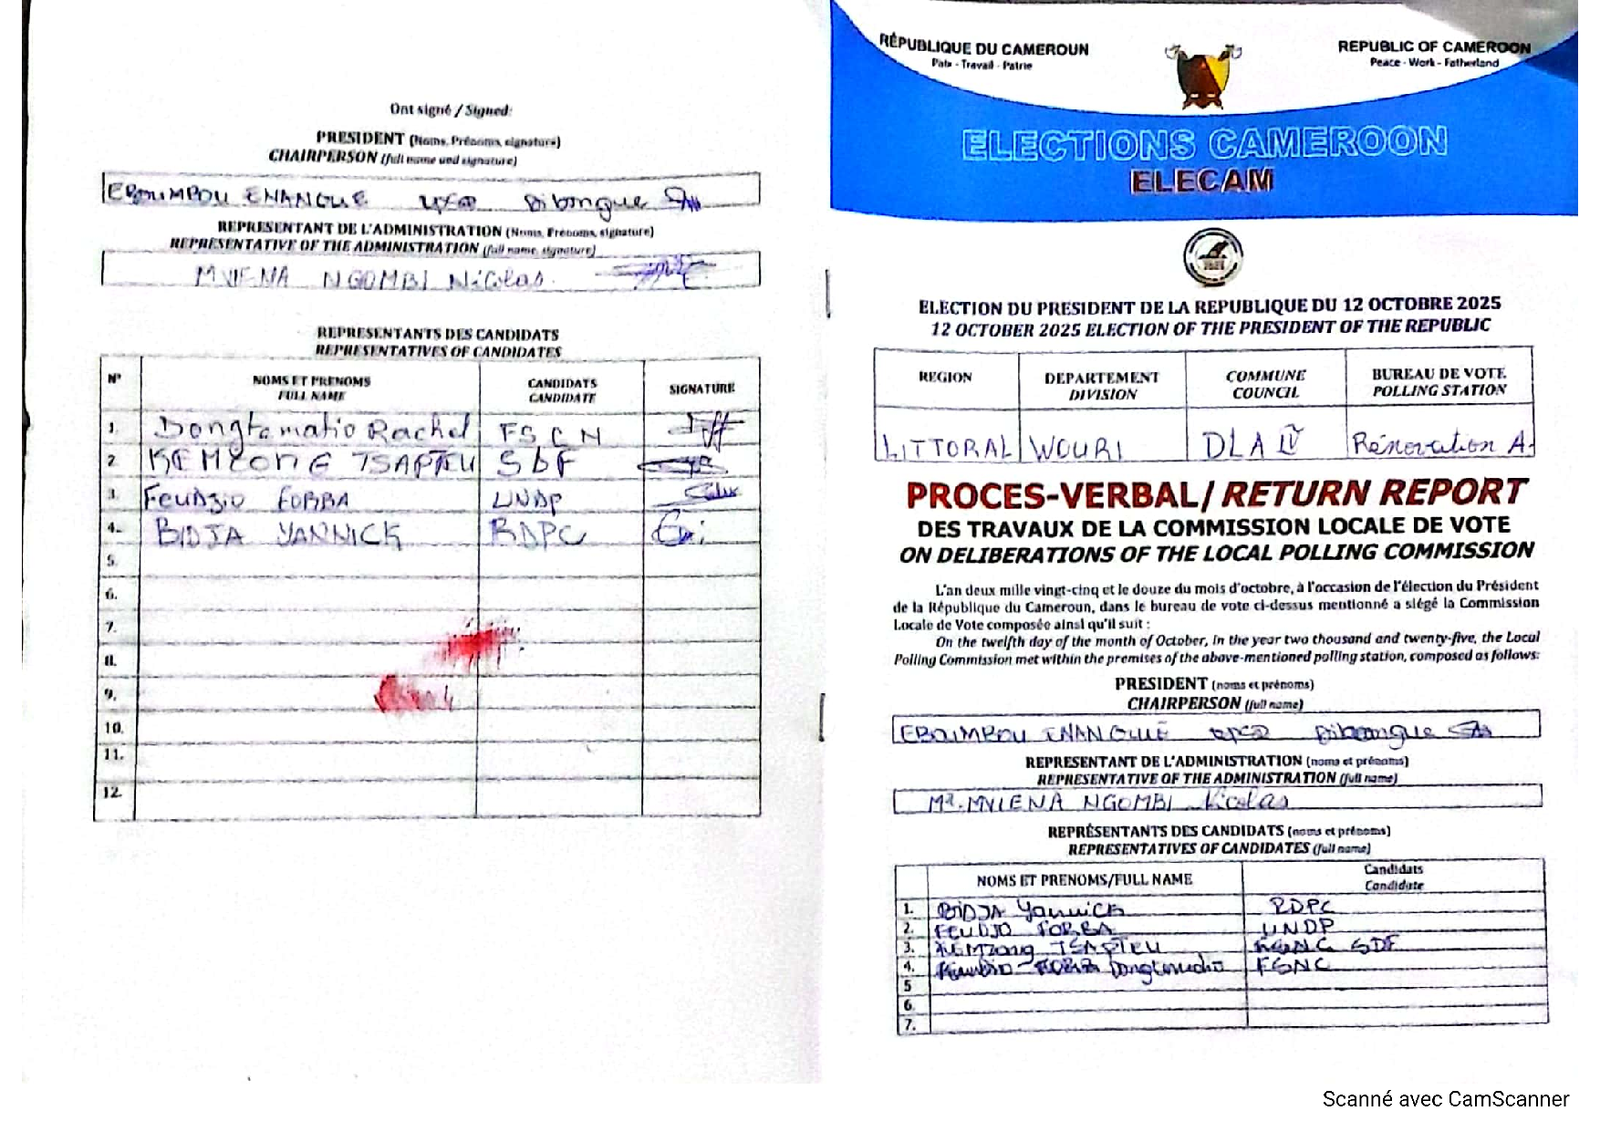 Ont signé / Signed:
PRESIDENT (Noms, Prénoms, signature)
CHAIRPERSON (full name and signature)
EBOUMBOU ENANGUE Dibongue
REPRESENTANT DE L'ADMINISTRATION (Noms, Prénoms, signature)
REPRESENTATIVE OF THE ADMINISTRATION (full name, signature)
MVIENA NGOMBI Nicolas
REPRESENTANTS DES CANDIDATS
REPRESENTATIVES OF CANDIDATES
N° NOMS ET PRENOMS CANDIDATS SIGNATURE
FULL NAME CANDIDATE
1. Dongtematio Rachel FSCN
2 KEMZONG TSAPTEU SDF
3. Feudzio FORBA UNDP
4. BIDJA YANNICK RDPC
5.
6.
7.
8.
9.
10.
11.
12.
RÉPUBLIQUE DU CAMEROUN
Paix - Travail - Patrie
REPUBLIC OF CAMEROON
Peace - Work - Fatherland
ELECTIONS CAMEROON
ELECAM
ELECTION DU PRESIDENT DE LA REPUBLIQUE DU 12 OCTOBRE 2025
12 OCTOBER 2025 ELECTION OF THE PRESIDENT OF THE REPUBLIC
REGION DEPARTEMENT COMMUNE BUREAU DE VOTE
DIVISION COUNCIL POLLING STATION
LITTORAL WOURI DLA IV Rénovation A.
PROCES-VERBAL/ RETURN REPORT
DES TRAVAUX DE LA COMMISSION LOCALE DE VOTE
ON DELIBERATIONS OF THE LOCAL POLLING COMMISSION
L'an deux mille vingt-cinq et le douze du mois d'octobre, à l'occasion de l'élection du Président
de la République du Cameroun, dans le bureau de vote ci-dessus mentionné a siégé la Commission
Locale de Vote composée ainsi qu'il suit :
On the twelfth day of the month of October, in the year two thousand and twenty-five, the Local
Polling Commission met within the premises of the above-mentioned polling station, composed as follows:
PRESIDENT (noms et prénoms)
CHAIRPERSON (full name)
EBOUMBOU ENANGUE Dibongue
REPRESENTANT DE L'ADMINISTRATION (noms et prénoms)
REPRESENTATIVE OF THE ADMINISTRATION (full name)
Mr. MVIENA NGOMBI Nicolas
REPRÉSENTANTS DES CANDIDATS (noms et prénoms)
REPRESENTATIVES OF CANDIDATES (full name)
NOMS ET PRENOMS/FULL NAME Candidats
Candidate
1. BIDJA Yannick RDPC
2. FEUDJO FORBA UNDP
3. KEMZONG TSAPTEU SDF
4. FSNC
5
6.
7.
Scanné avec CamScanner